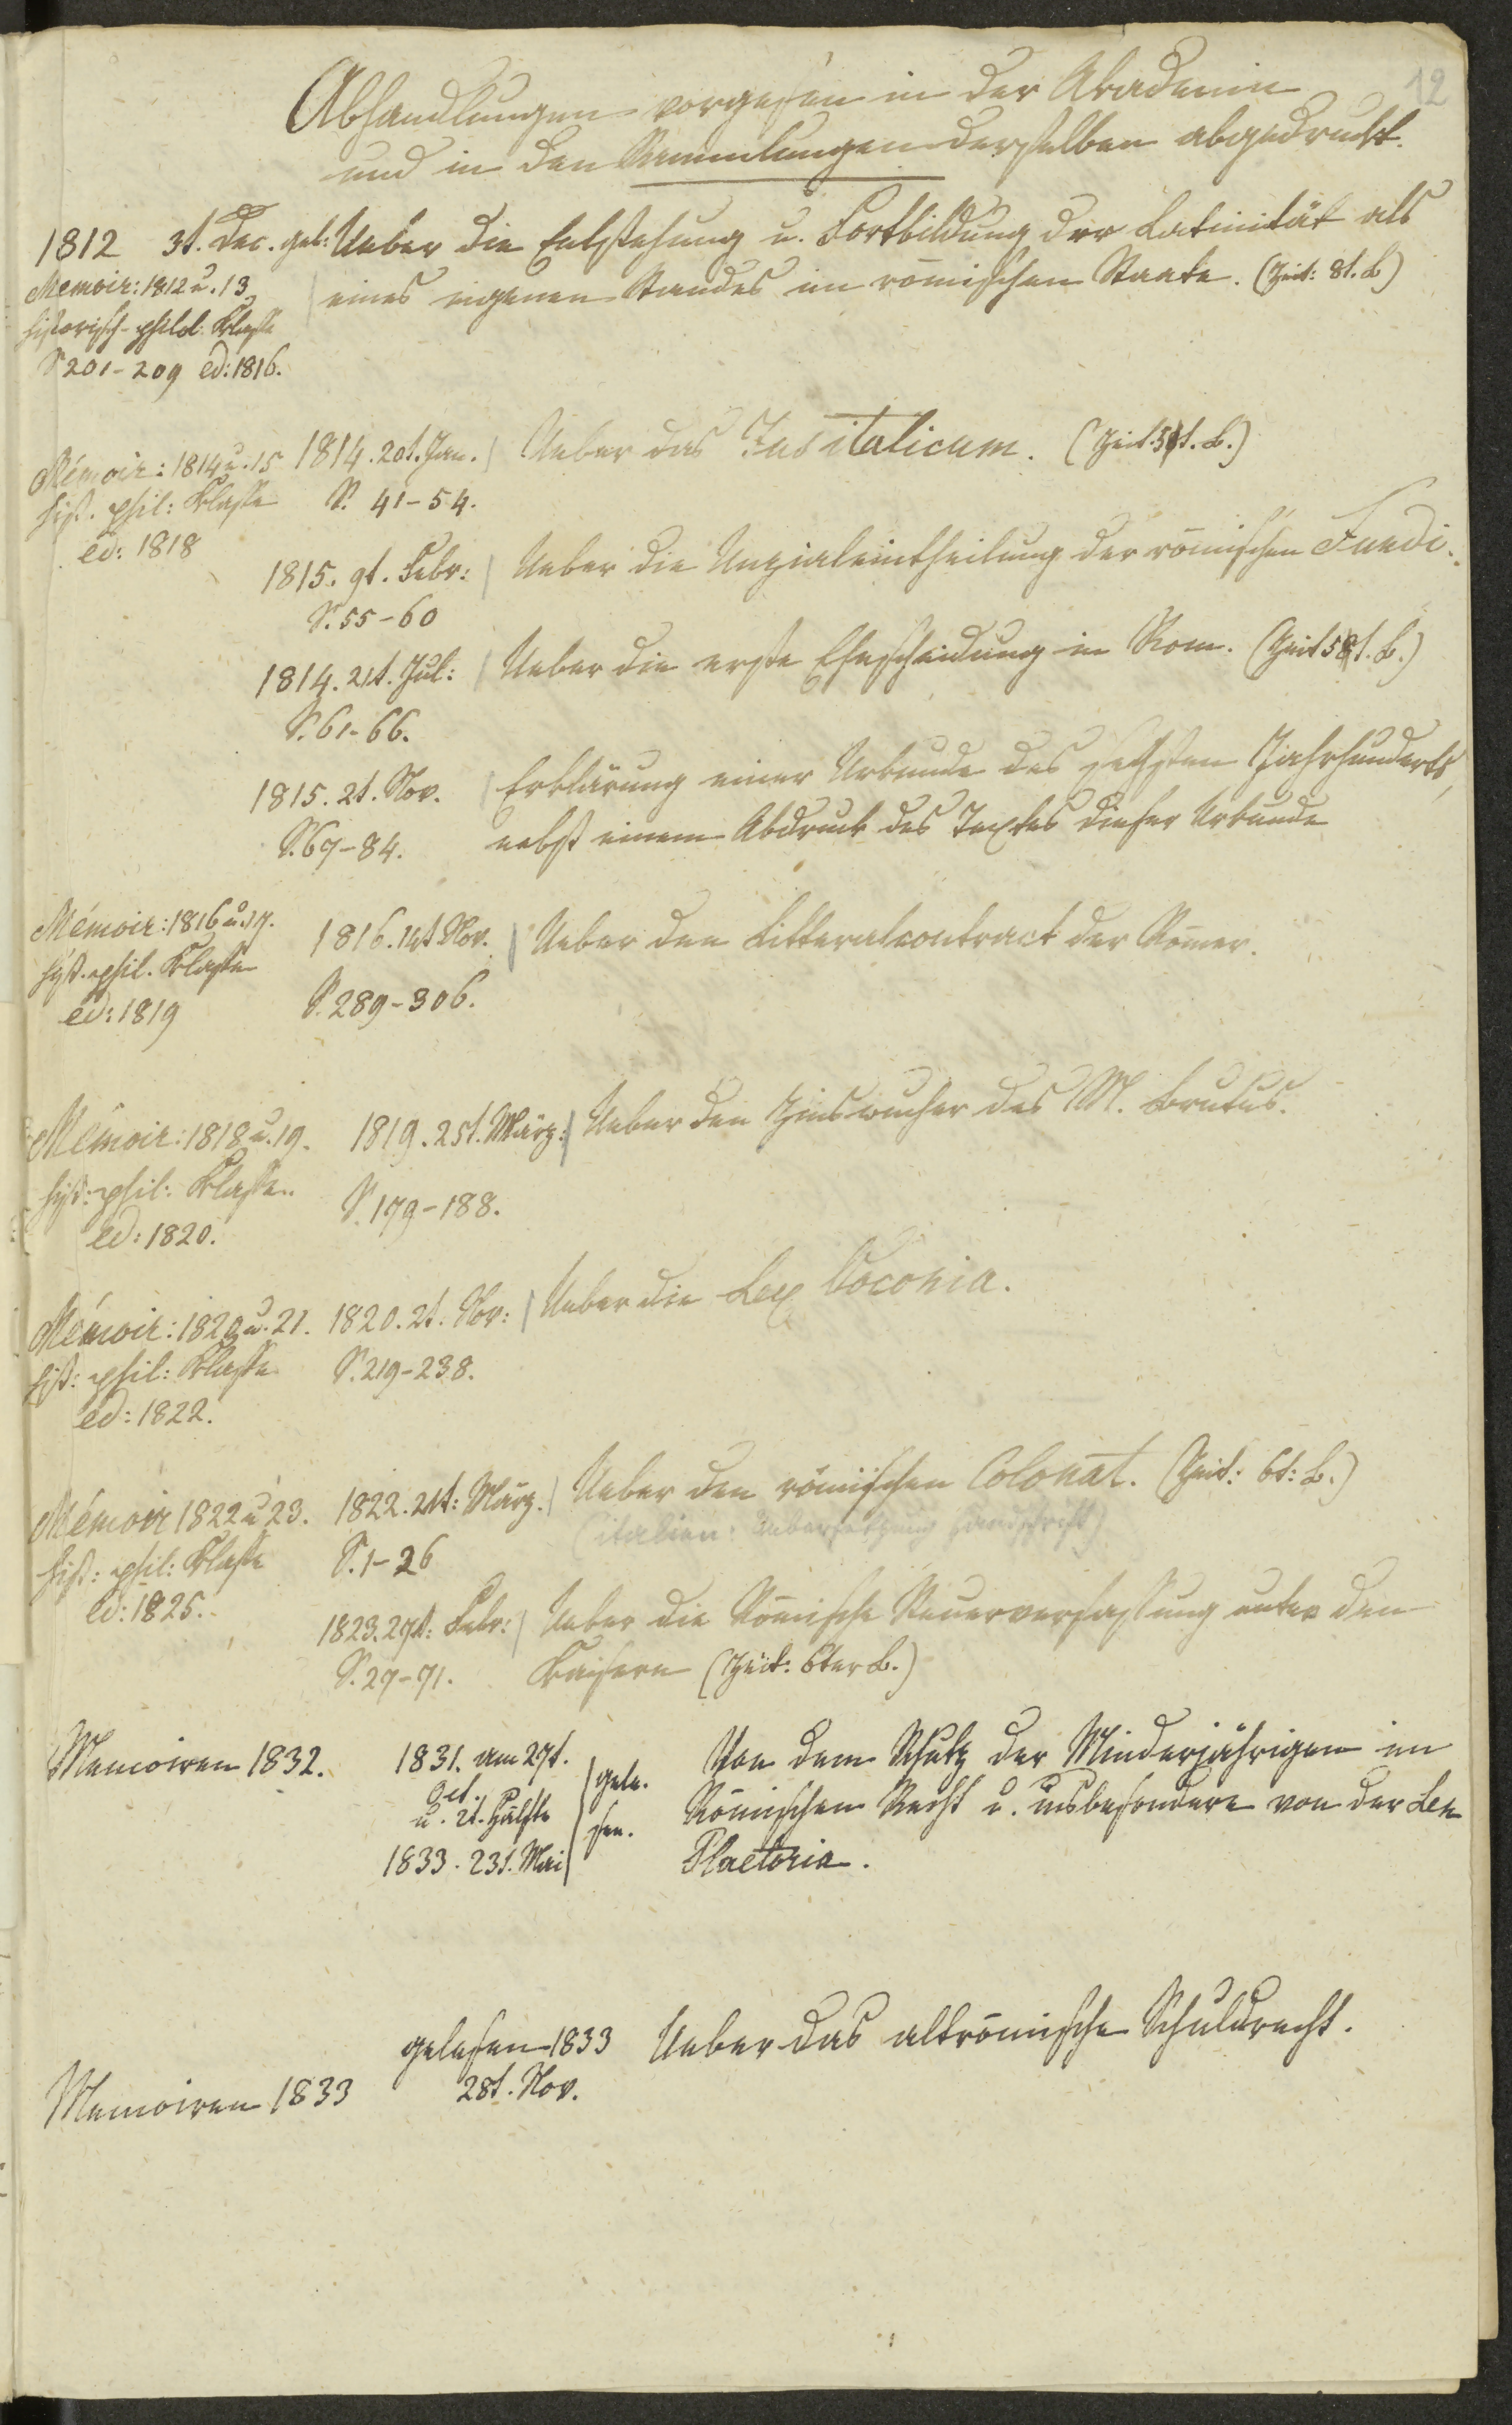 12
Abhandlungen vorgelesen in der Akademie
und in den Sammlungen derselben abgedruckt.
1812 3t. Dec. gel: Ueber die Entstehung u. Fortbildung der Latinität als
eines eigenen Standes im römischen Staate. (Zeit: 8t. B)
Memoir: 1812 u. 13
historisch-philol: Klasse
S 201-209 ed: 1816.
Mémoir: 1814 u. 15 1814. 20t. Jan. Ueber das Jus italicum. (Zeit. 5t. B.)
hist. phil: Klasse S. 41-54.
ed: 1818
1815. 9t. Febr: Ueber die Unzialeintheilung der römischen Fundi.
S. 55-60
1814. 21t. Jul: Ueber die erste Ehescheidung in Rom. (Zeit 5t. B.)
S. 61-66.
1815. 2t. Nov. Erklärung einer Urkunde des sechsten Jahrhunderts,
S. 67-84. nebst einem Abdruck des Textes dieser Urkunde
Mémoir: 1816 u. 17. 1816. 14t Nov. Ueber den Litteralcontract der Römer.
hist. phil. Klasse S. 289-306.
ed: 1819
Mémoir: 1818 u. 19. 1819. 25t. März: Ueber den Zinswucher des M. Brutus.
hist: phil: Klasse. S. 179-188.
ed: 1820.
Mémoir: 1820 u. 21. 1820. 2t. Nov: Ueber die Lex Voconia.
hist: phil: Klasse S. 219-238.
ed: 1822.
Mémoir 1822 u 23. 1822. 21t: März. Ueber den römischen Colonat. (Zeit: 6t: B.)
(italien: Uebersetzung handschrift)
hist: phil: Klasse S. 1-26
ed: 1825.
1823. 27t: Febr: Ueber die Römische Steuerverfassung unter den
S. 27-71. Kaisern (Zeit: 6ter B.)
Memoiren 1832. 1831. am 27t. Von dem Schutz der Minderjährigen im
Oct. gele-
u. 2t. Hälfte sen. Römischen Recht u. insbesondere von der Lex
1833. 23t. Mai Plaetoria.
gelesen 1833 Ueber das altrömische Schuldrecht.
Memoiren 1833 28t. Nov.